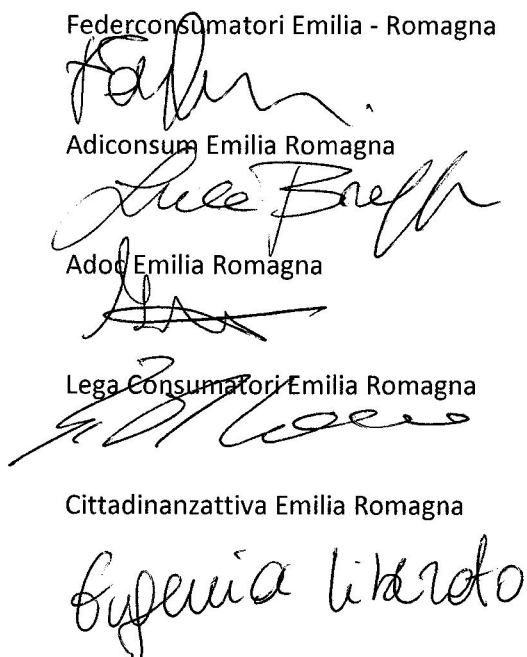 Federconsumatori Emilia - Romagna
Adiconsum Emilia Romagna
Luca Braggion
Adoc Emilia Romagna
Lega Consumatori Emilia Romagna
Cittadinanzattiva Emilia Romagna
Eugenia Liberato